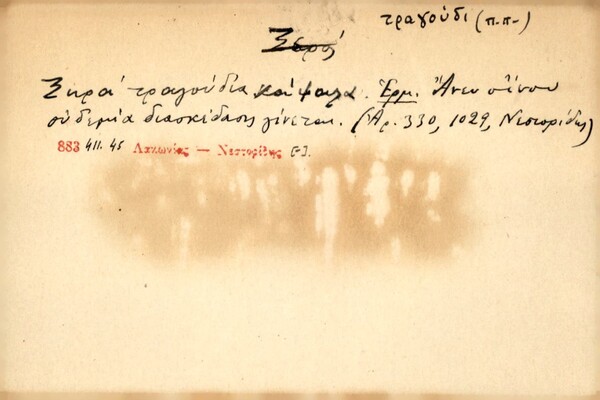 τραγούδι (π.π.)
Ξερός
Ξηρά τραγούδια καί ψαλμ. Ἑρμ. Ἄνευ οἴνου
οὐδεμία διασκέδασις γίνεται. (Ἀρ. 330, 1029, Νεστορίδης)
883 411. 45 Λακωνίας — Νεστορίδης [-].